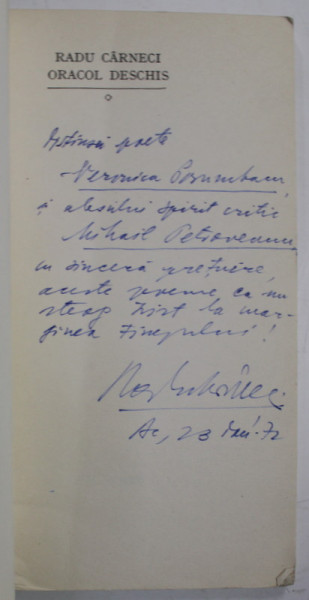 RADU CÂRNECI
ORACOL DESCHIS
Distinsei poete
Veronica Porumbacu,
și alesului spirit critic
Mihail Petroveanu,
cu sinceră prețuire,
aceste poeme ca un
steag trist la mar-
ginea timpului!
Radu Cârneci
Bc, 23 ian.-72